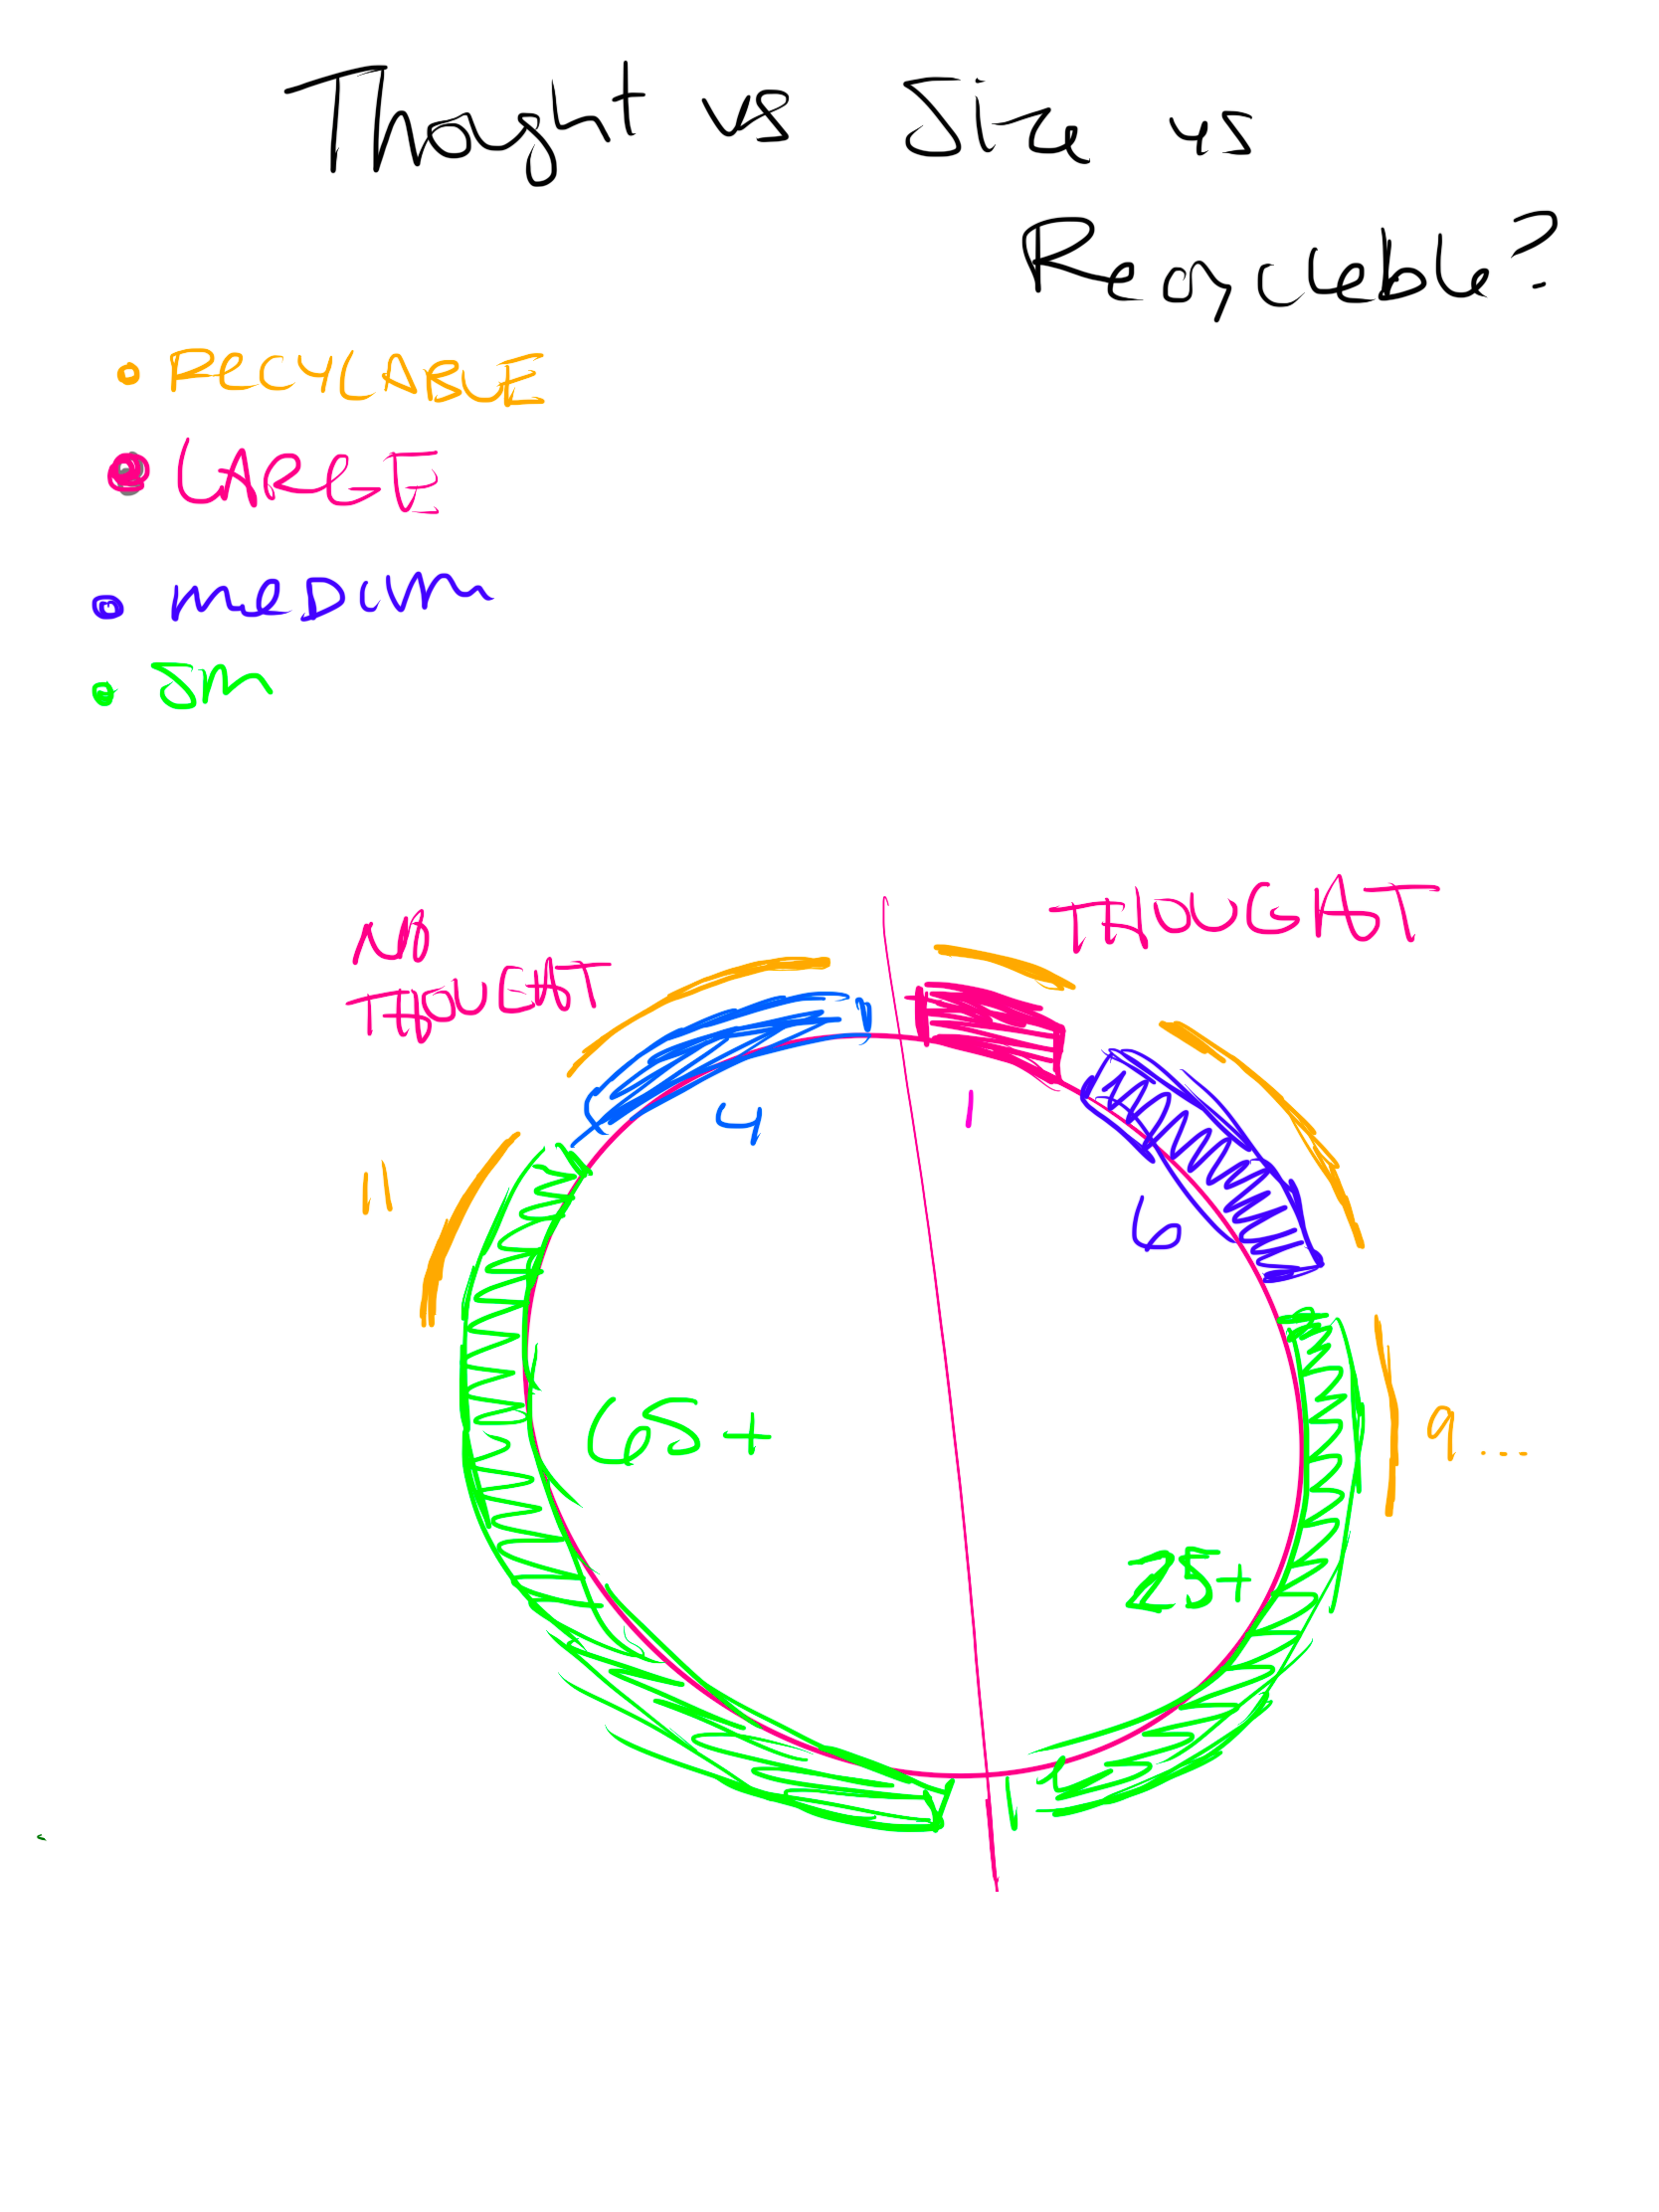 Thought vs Size vs
Recycleble?
RECYLABLE
LARGE
meDIUm
Sm
NO
THOUGHT
THOUGHT
4
1
11
6
65+
9...
25+